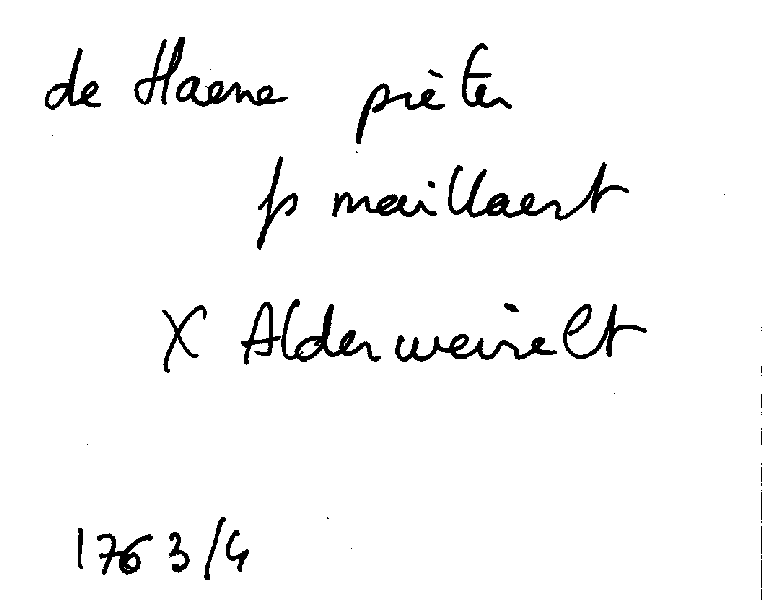 de Haene pièter
fs maillaert
X Alderweirelt
1763/4